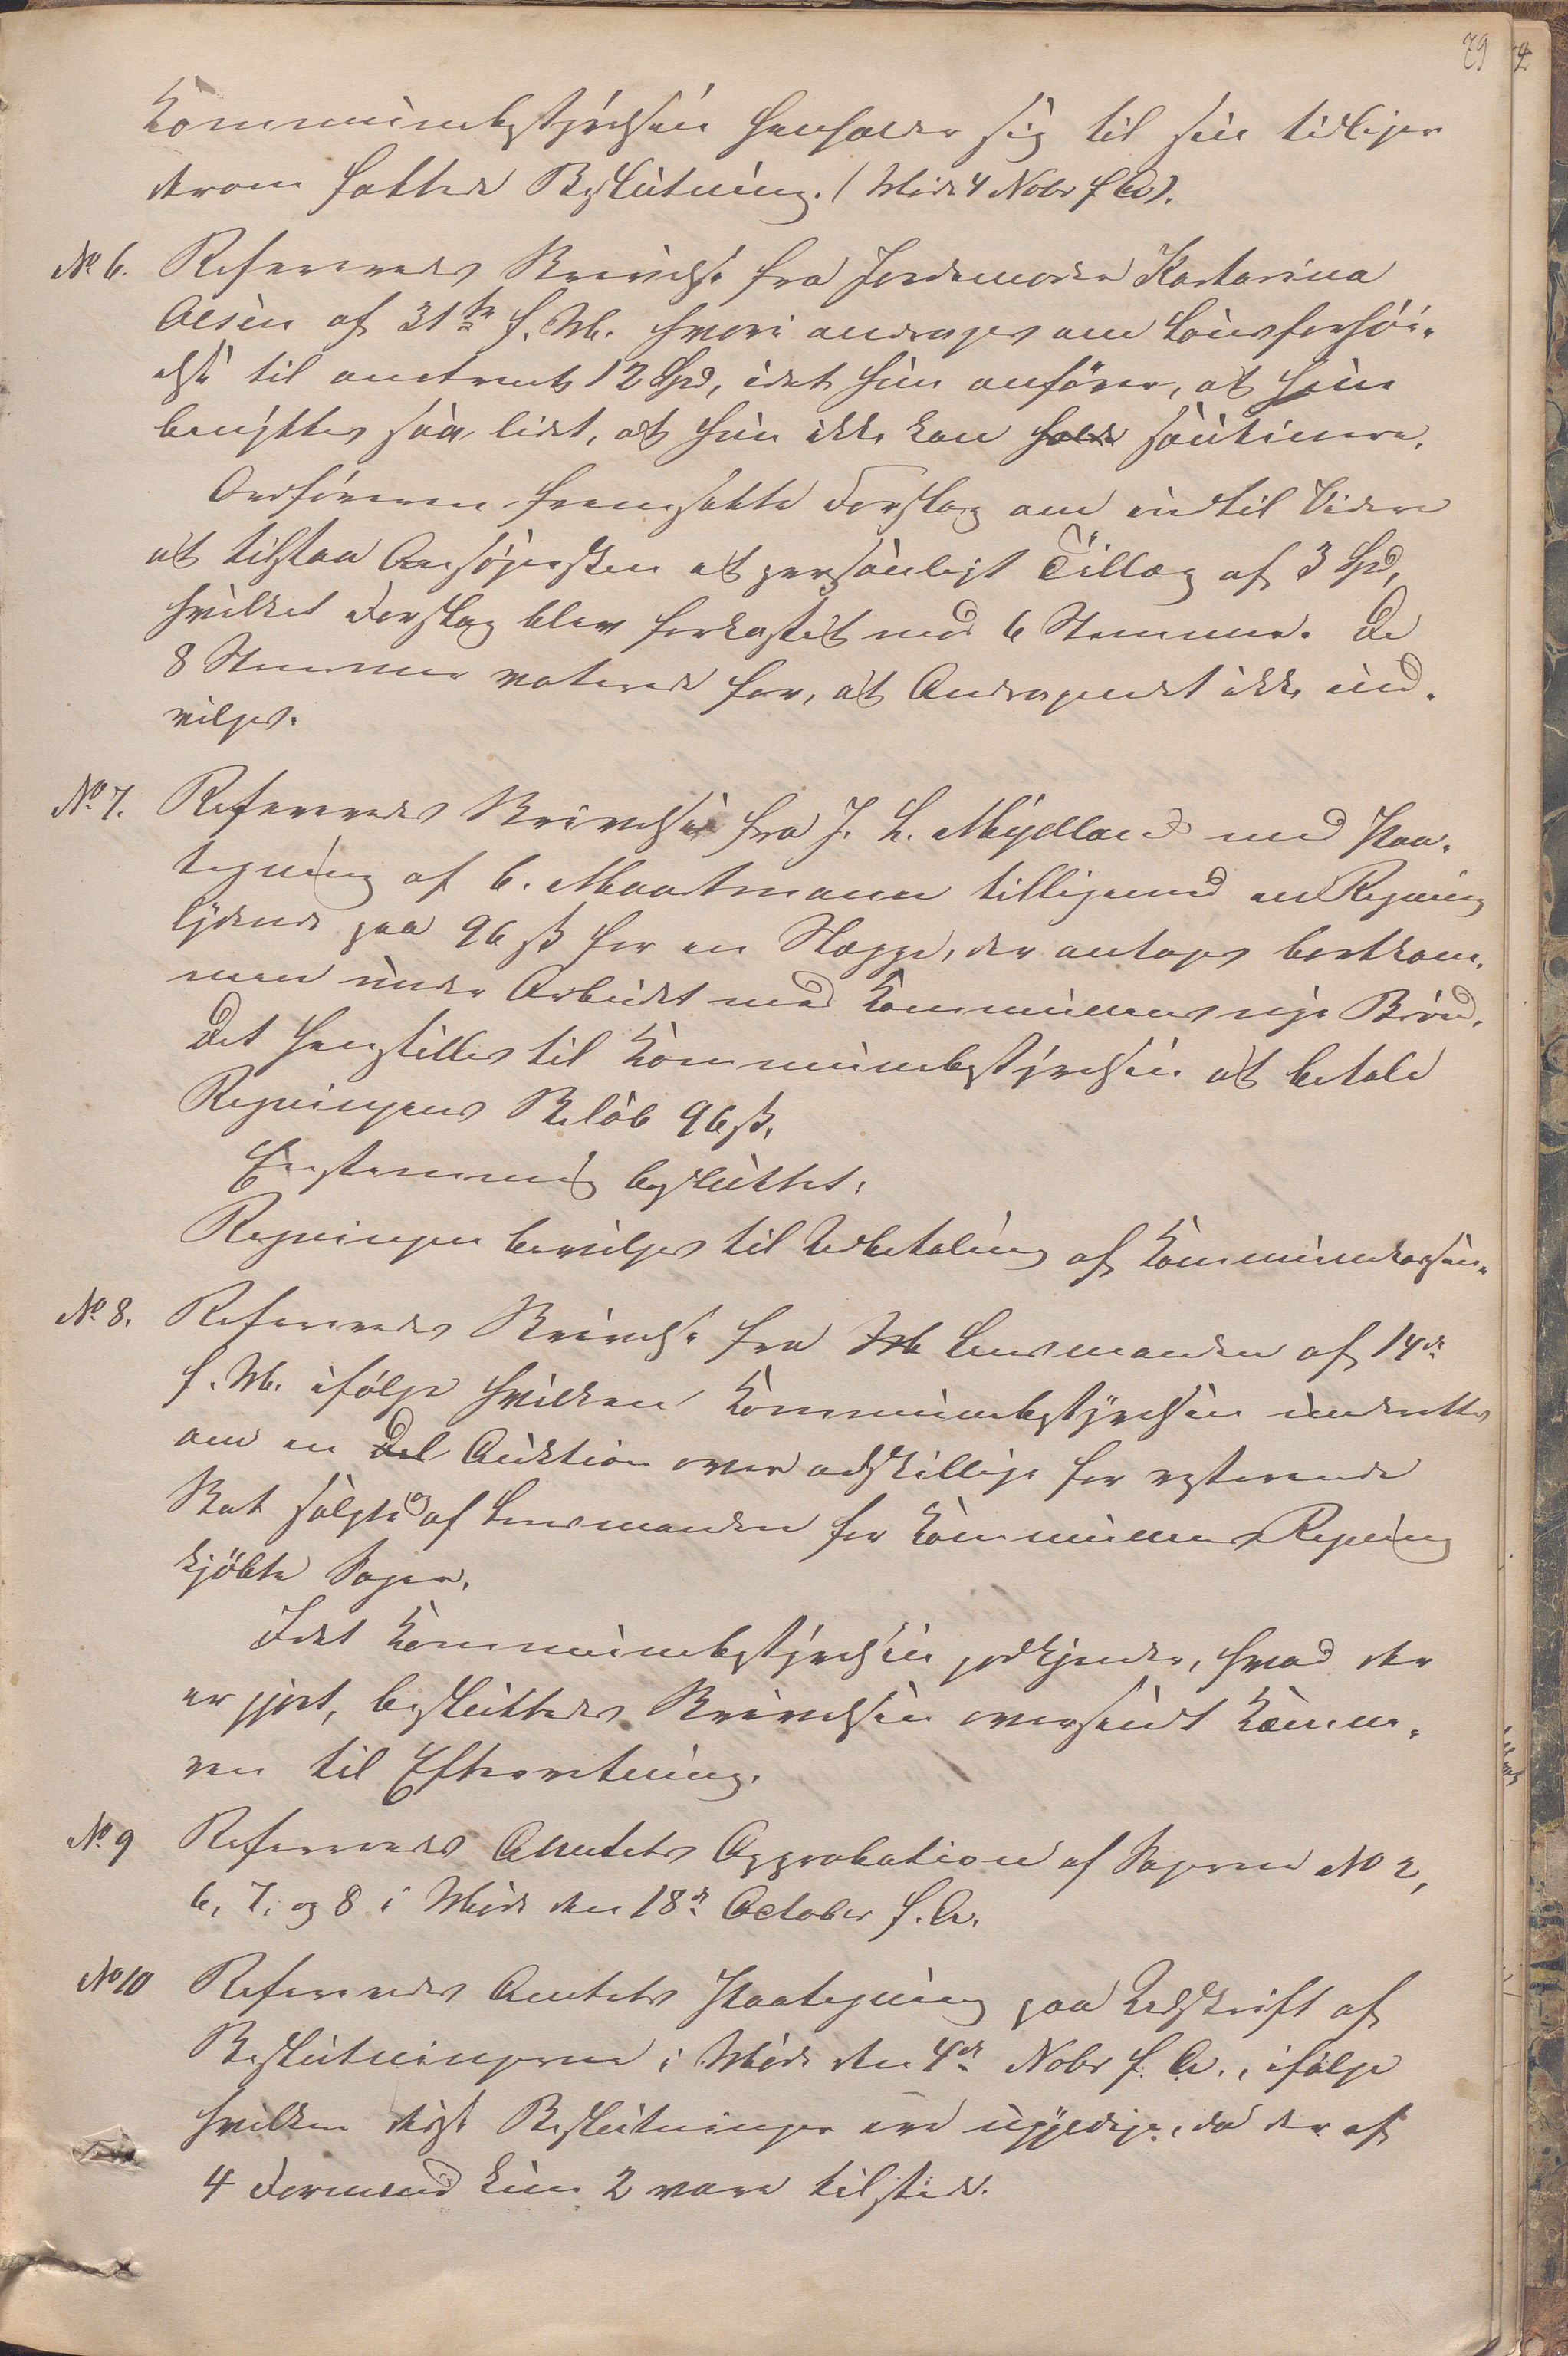 79
Kommunebestyrelsen henholder sig til sin tidligere
derom fattede Beslutning. (Møde 4 Nobr f A).
No 6. Refereredes Skrivelse fra Jordemoder Katarina
Olsen af 31te f. M. hvori andrages om Lønsforhöi-
else til omtrent 12 Spd, idet hun anförer, at hun
benyttes saa lidt, at hun ikke kan holde soutinere.
Ordføreren fremsatte Forslag om indtil Videre
at tilstaa Ansøgersken et personligt Tillæg af 3 Spd,
hvilket Forslag blev forkastet med 6 Stemmer. De
8 Stemmer voterede for, at Andragendet ikke ind-
vilges.
No 7. Refereredes Skrivelse fra J. L. Mydland med Paa-
tegning af C. Maatmann tilligemed en Regning
lydende paa 96 ß for en Slægge, der antages bortkom-
men under Arbeidet med Kommunens nye Brönd.
Det henstilles til Kommunebestyrelsen at betale
Regningens Belöb 96 ß.
Enstemmig besluttet:
Regningen bevilges til Udbetaling af Kommunekassen.
No 8. Refereredes Skrivelse fra M Lensmanden af 14de
f. M. ifölge hvilken Kommunebestyrelsen underrettes
om en Del Auktion over adskillige for resterende
Skat solgte og af Lensmanden for Kommunens Regning
kjöbte Sager.
Idet Kommunebestyrelsen godkjender, hvad der
er gjort, besluttedes Skrivelsen oversendt Kæmne-
ren til Efterretning.
No 9 Refereredes Amtets Approbation af Sagerne No 2,
6, 7, og 8 i Møde den 18de October f. A.
No 10 Refereredes Amtets Paategning paa Udskrift af
Beslutningerne i Møde den 4de Nobr f. A., ifølge
hvilken disse Beslutninger ere ugyldige, da der af
4 Formænd kun 2 vare tilstede.